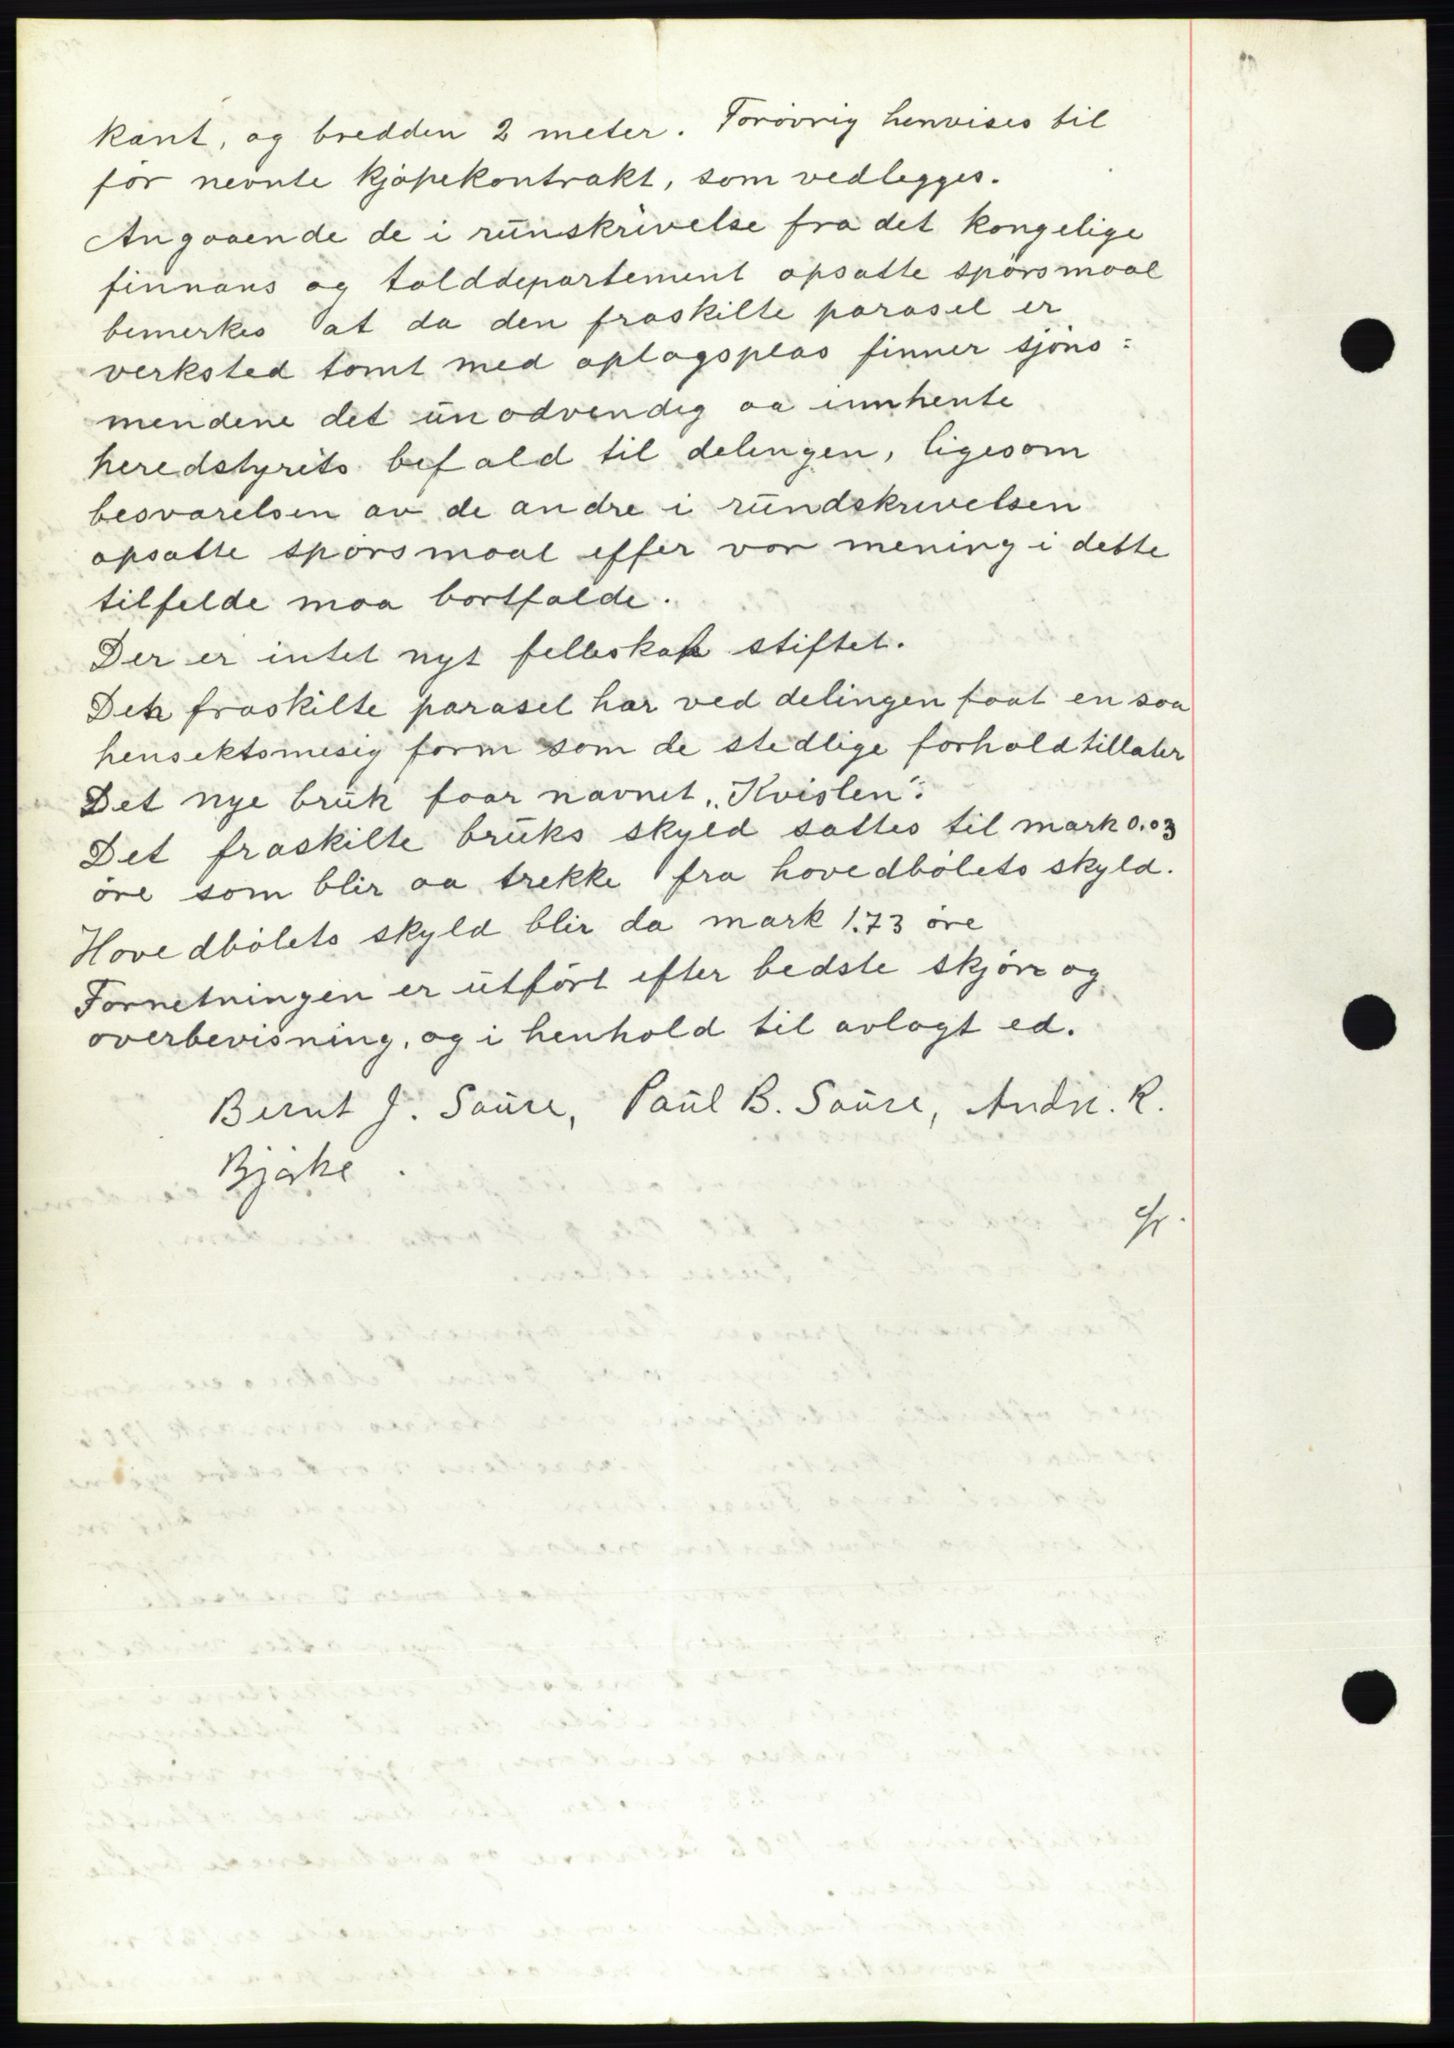 kant, og bredden 2 meter. Forövrig henvises til
för nevnte kjöpekontrakt, som vedlegges.
Angaaende de i runskrivelse fra det kongelige
finnans og tolddepartement opsatte spörsmaal
bemerkes at da den fraskilte parasel er
verksted tomt med oplagsplas finner sjöns=
mendene det unödvendig aa innhente
heredstyrets befald til delingen, ligesom
besvarelsen av de andre i rundskrivelsen
opsatte spörsmaal efter vor mening i dette
tilfelde maa bortfalde.
Der er intet nyt felleskap stiftet.
Den fraskilte parasel har ved delingen faat en saa
hensektsmesig form som de stedlige forhold tillater
Det nye bruk faar navnet „Kvislen".
Det fraskilte bruks skyld sattes til mark 0.03
öre som blir aa trekke fra hovedbölets skyld.
Hovedbölets skyld blir da mark 1.73 öre
Forretningen er utfört efter bedste skjön og
overbevisning, og i henhold til avlagt ed.
Bernt J. Saure, Paul B. Saure, Andr. R.
Bjørke.